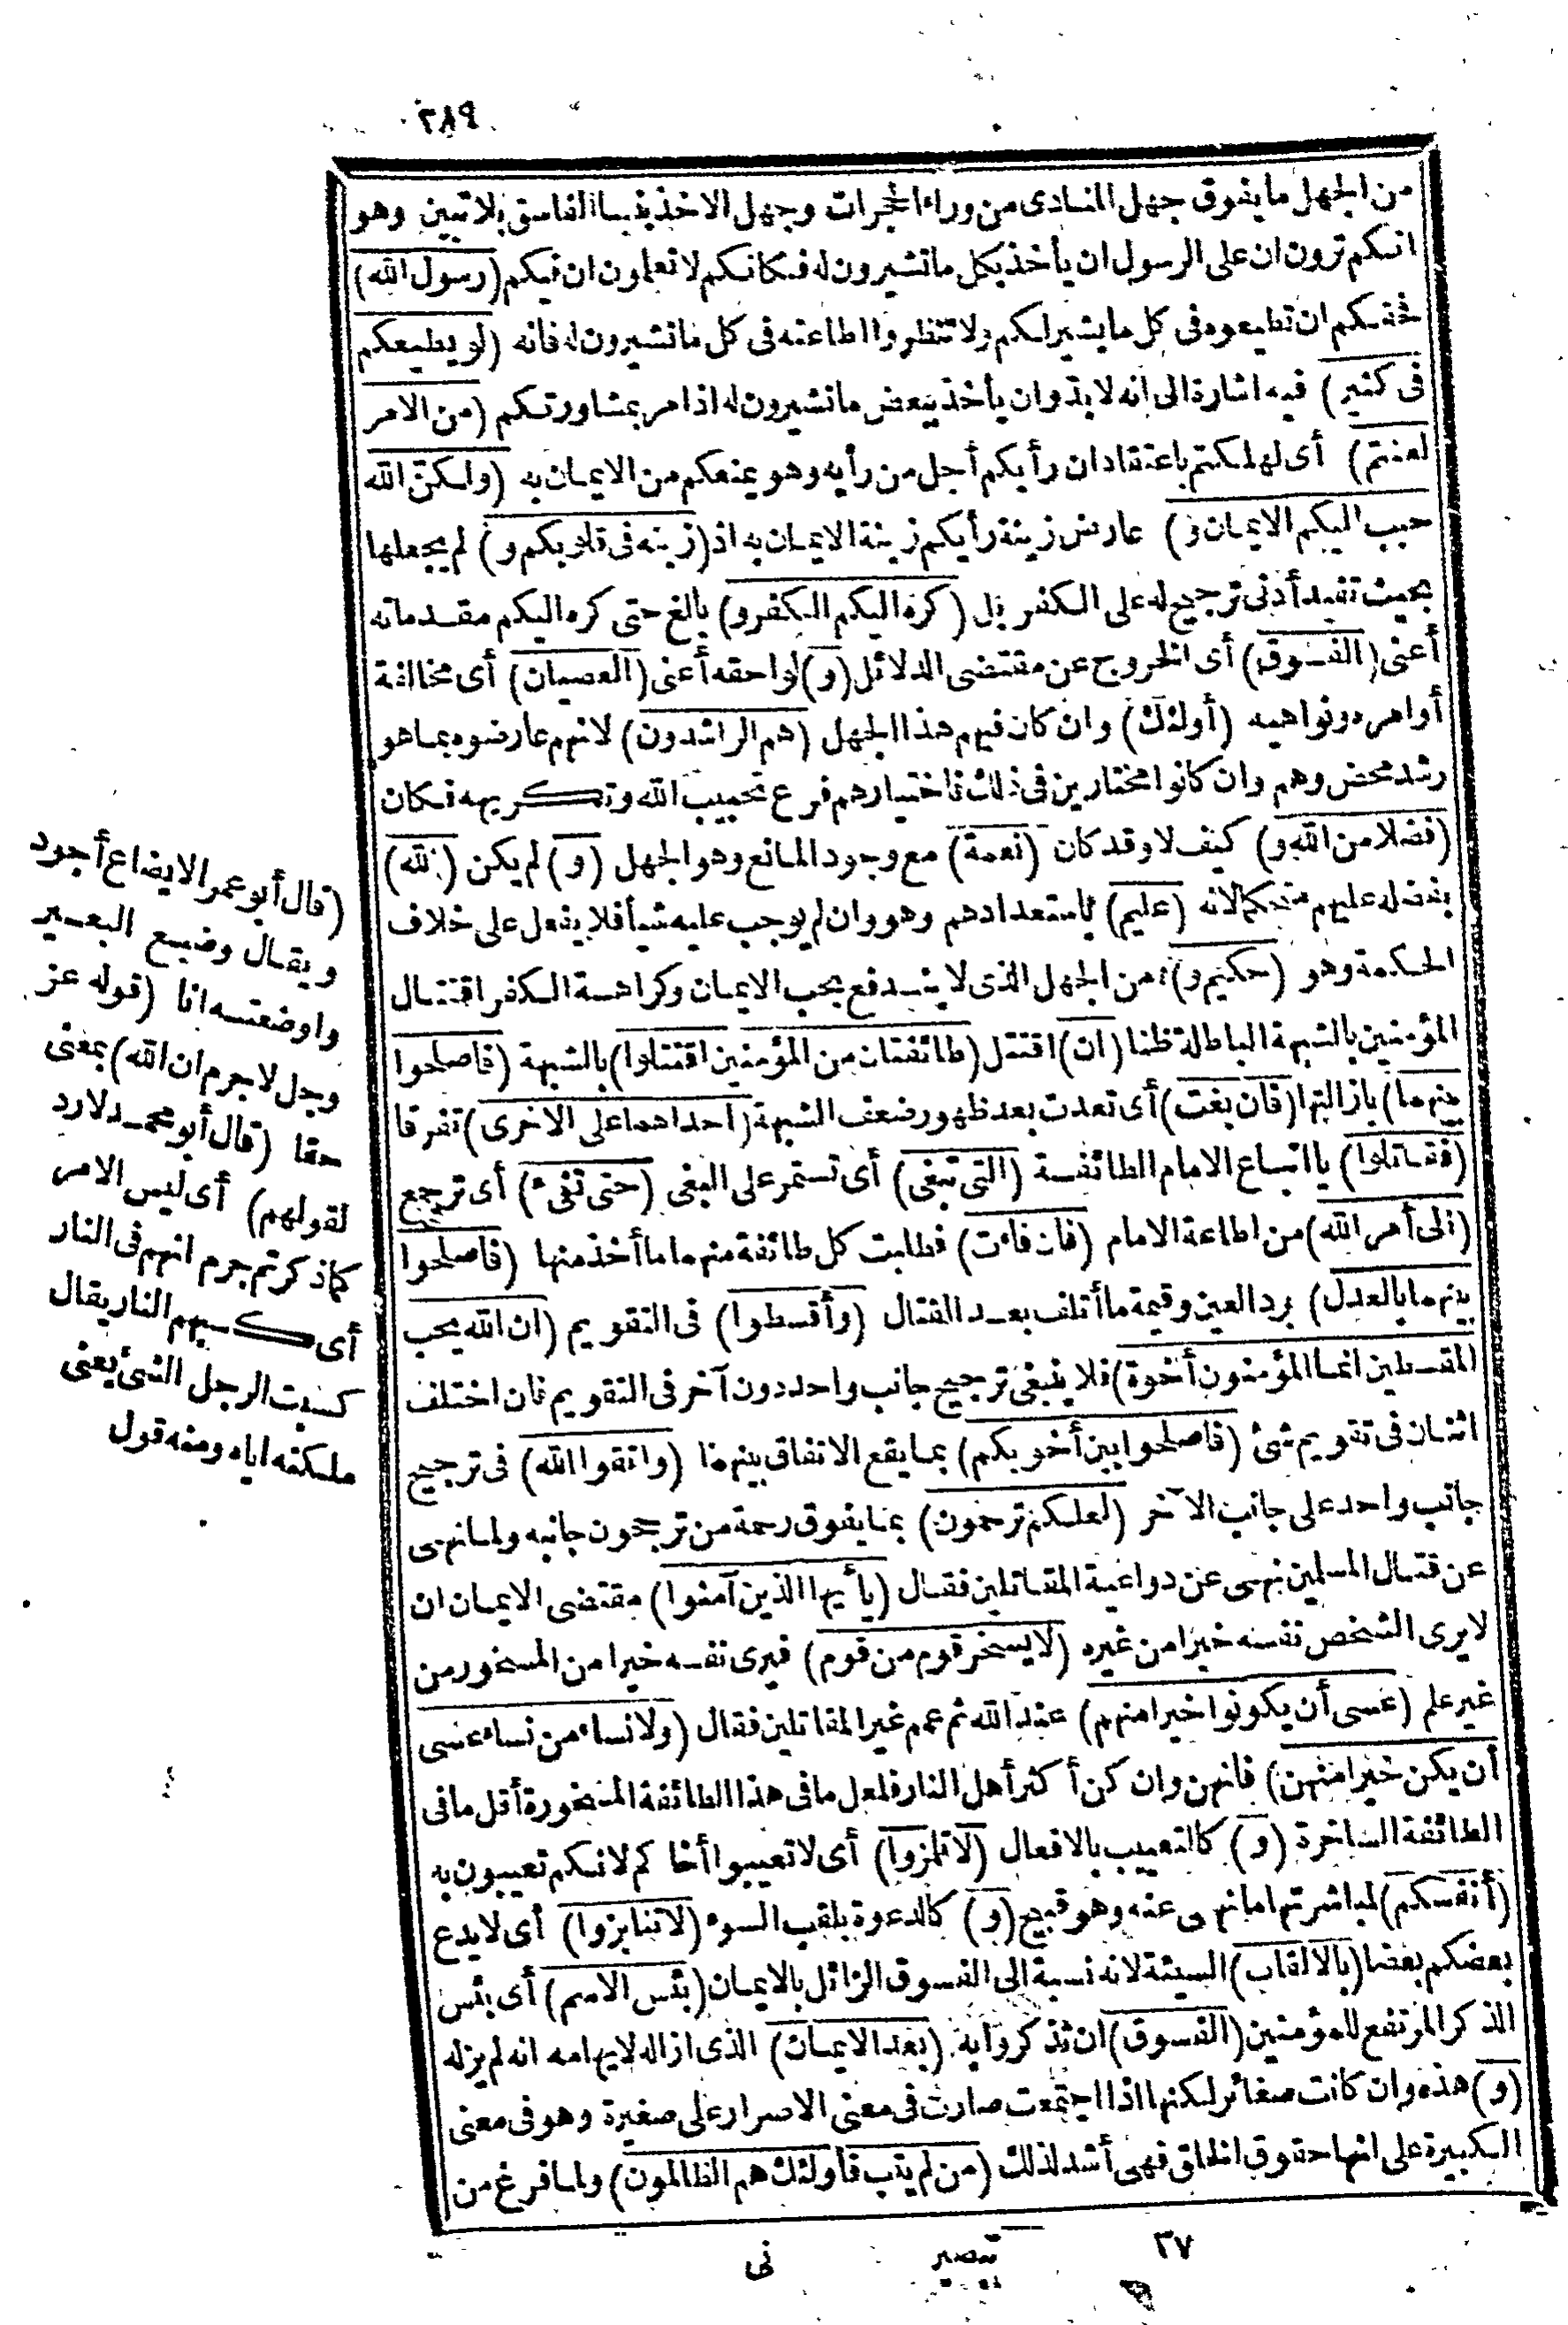 ٢٨٩
من الجهل ما يفوق جهل المنادى من وراء الحجرات وجهل الاخذ بنبا الفاسق بلا تبين وهو
انكم ترون ان على الرسول ان يأخذ بكل ما تشيرون له فكانكم لا تعلمون ان فيكم (رسول الله)
فحقكم ان تطيعوه فى كل ما يشير لكم ولا تنتظروا اطاعته فى كل ما تشيرون له فانه (لو يطيعكم
فى كثير) فيه اشارة الى انه لا بد وان يأخذ ببعض ما تشيرون له اذ امر بمشاورتكم (من الامر
لعنتم) أى لهلكتم باعتقاد ان رأيكم أجل من رأيه وهو يمنعكم من الايمان به (ولكن الله
حبب اليكم الايمان و) عارض زينة رأيكم زينة الايمان به اذ (زينه فى قلوبكم و) لم يجعلها
بحيث تفيد أدنى ترجيح له على الكفر بل (كره اليكم الكفر و) بالغ حتى كره اليكم مقدماته
أعنى (الفسوق) أى الخروج عن مقتضى الدلائل (و) لواحقه أعنى (العصيان) أى مخالفة
أوامره ونواهيه (أولئك) وان كان فيهم هذا الجهل (هم الراشدون) لانهم عارضوه بما هو
رشد محض وهم وان كانوا مختارين فى ذلك فاختيارهم فرع تحبيب الله وتكريهه فكان
(فضلا من الله و) كيف لا وقد كان (نعمة) مع وجود المانع وهو الجهل (و) لم يكن (الله)
بفضله عليهم متحكما لانه (عليم) باستعدادهم وهو وان لم يوجب عليه شيأ فلا يفعل على خلاف
الحكمة وهو (حكيم و) من الجهل الذى لا يندفع بحب الايمان وكراهة الكفر اقتتال
المؤمنين بالشبهة الباطلة ظنا (ان) اقتتل (طائفتان من المؤمنين اقتتلوا) بالشبهة (فاصلحوا
بينهما) بازالتها (فان بغت) أى تعدت بعد ظهور ضعف الشبهة (احداهما على الاخرى) تفرقا
(فقاتلوا) يا اتباع الامام الطائفة (التى تبغى) أى تستمر على البغى (حتى تفىء) أى ترجع
(الى أمر الله) من اطاعة الامام (فان فاءت) فطلبت كل طائفة منهما ما أخذ منها (فاصلحوا
بينهما بالعدل) برد العين وقيمة ما أتلف بعد القتال (وأقسطوا) فى التقويم (ان الله يحب
المقسطين انما المؤمنون أخوة) فلا ينبغى ترجيح جانب واحد دون آخر فى التقويم فان اختلف
اثنان فى تقويم شئ (فاصلحوا بين أخويكم) بما يقع الاتفاق بينهما (واتقوا الله) فى ترجيح
جانب واحد على جانب الآخر (لعلكم ترحمون) بما يفوق رحمة من ترجحون جانبه ولما نهى
عن قتال المسلمين نهى عن دواعية المقاتلين فقال (يا أيها الذين آمنوا) مقتضى الايمان ان
لا يرى الشخص نفسه خيرا من غيره (لا يسخر قوم من قوم) فيرى نفسه خيرا من المسخور من
غير علم (عسى أن يكونوا خيرا منهم) عند الله ثم عمم غير المقاتلين فقال (ولا نساء من نساء عسى
أن يكن خيرا منهن) فانهن وان كن أكثر أهل النار فلعل ما فى هذا الطائفة المسخورة أقل ما فى
الطائفة الساخرة (و) كالتعييب بالافعال (لا تلمزوا) أى لا تعيبوا أخا كم لانكم تعيبون به
(أنفسكم) لمباشرتها ما نهى عنه وهو قبيح (و) كالدعوة بلقب السوء (لا تنابزوا) أى لا يدع
بعضكم بعضا (بالالقاب) السيئة لانه نسبة الى الفسوق الزائل بالايمان (بئس الاسم) أى بئس
الذكر المرتفع للمؤمنين (الفسوق) ان تذكروا به (بعد الايمان) الذى ازاله لايهامه انه لم يزله
(و) هذه وان كانت صغائر لكنها اذا اجتمعت صارت فى معنى الاصرار على صغيرة وهو فى معنى
الكبيرة على انها حقوق الخلق فهى أشد لذلك (من لم يتب فأولئك هم الظالمون) ولما فرغ من
(قال أبو عمر الايضاع أجود
ويقال وضع البعير
واوضعته انا (قوله عز
وجل لا جرم ان الله) بمعنى
حقا (قال أبو محمد لا رد
لقولهم) أى ليس الامر
كما ذكرتم جرم انهم فى النار
أى كسبهم النار يقال
كسبت الرجل الشئ يعنى
ملكته اياه ومنه قول
٣٧ تبصير نى